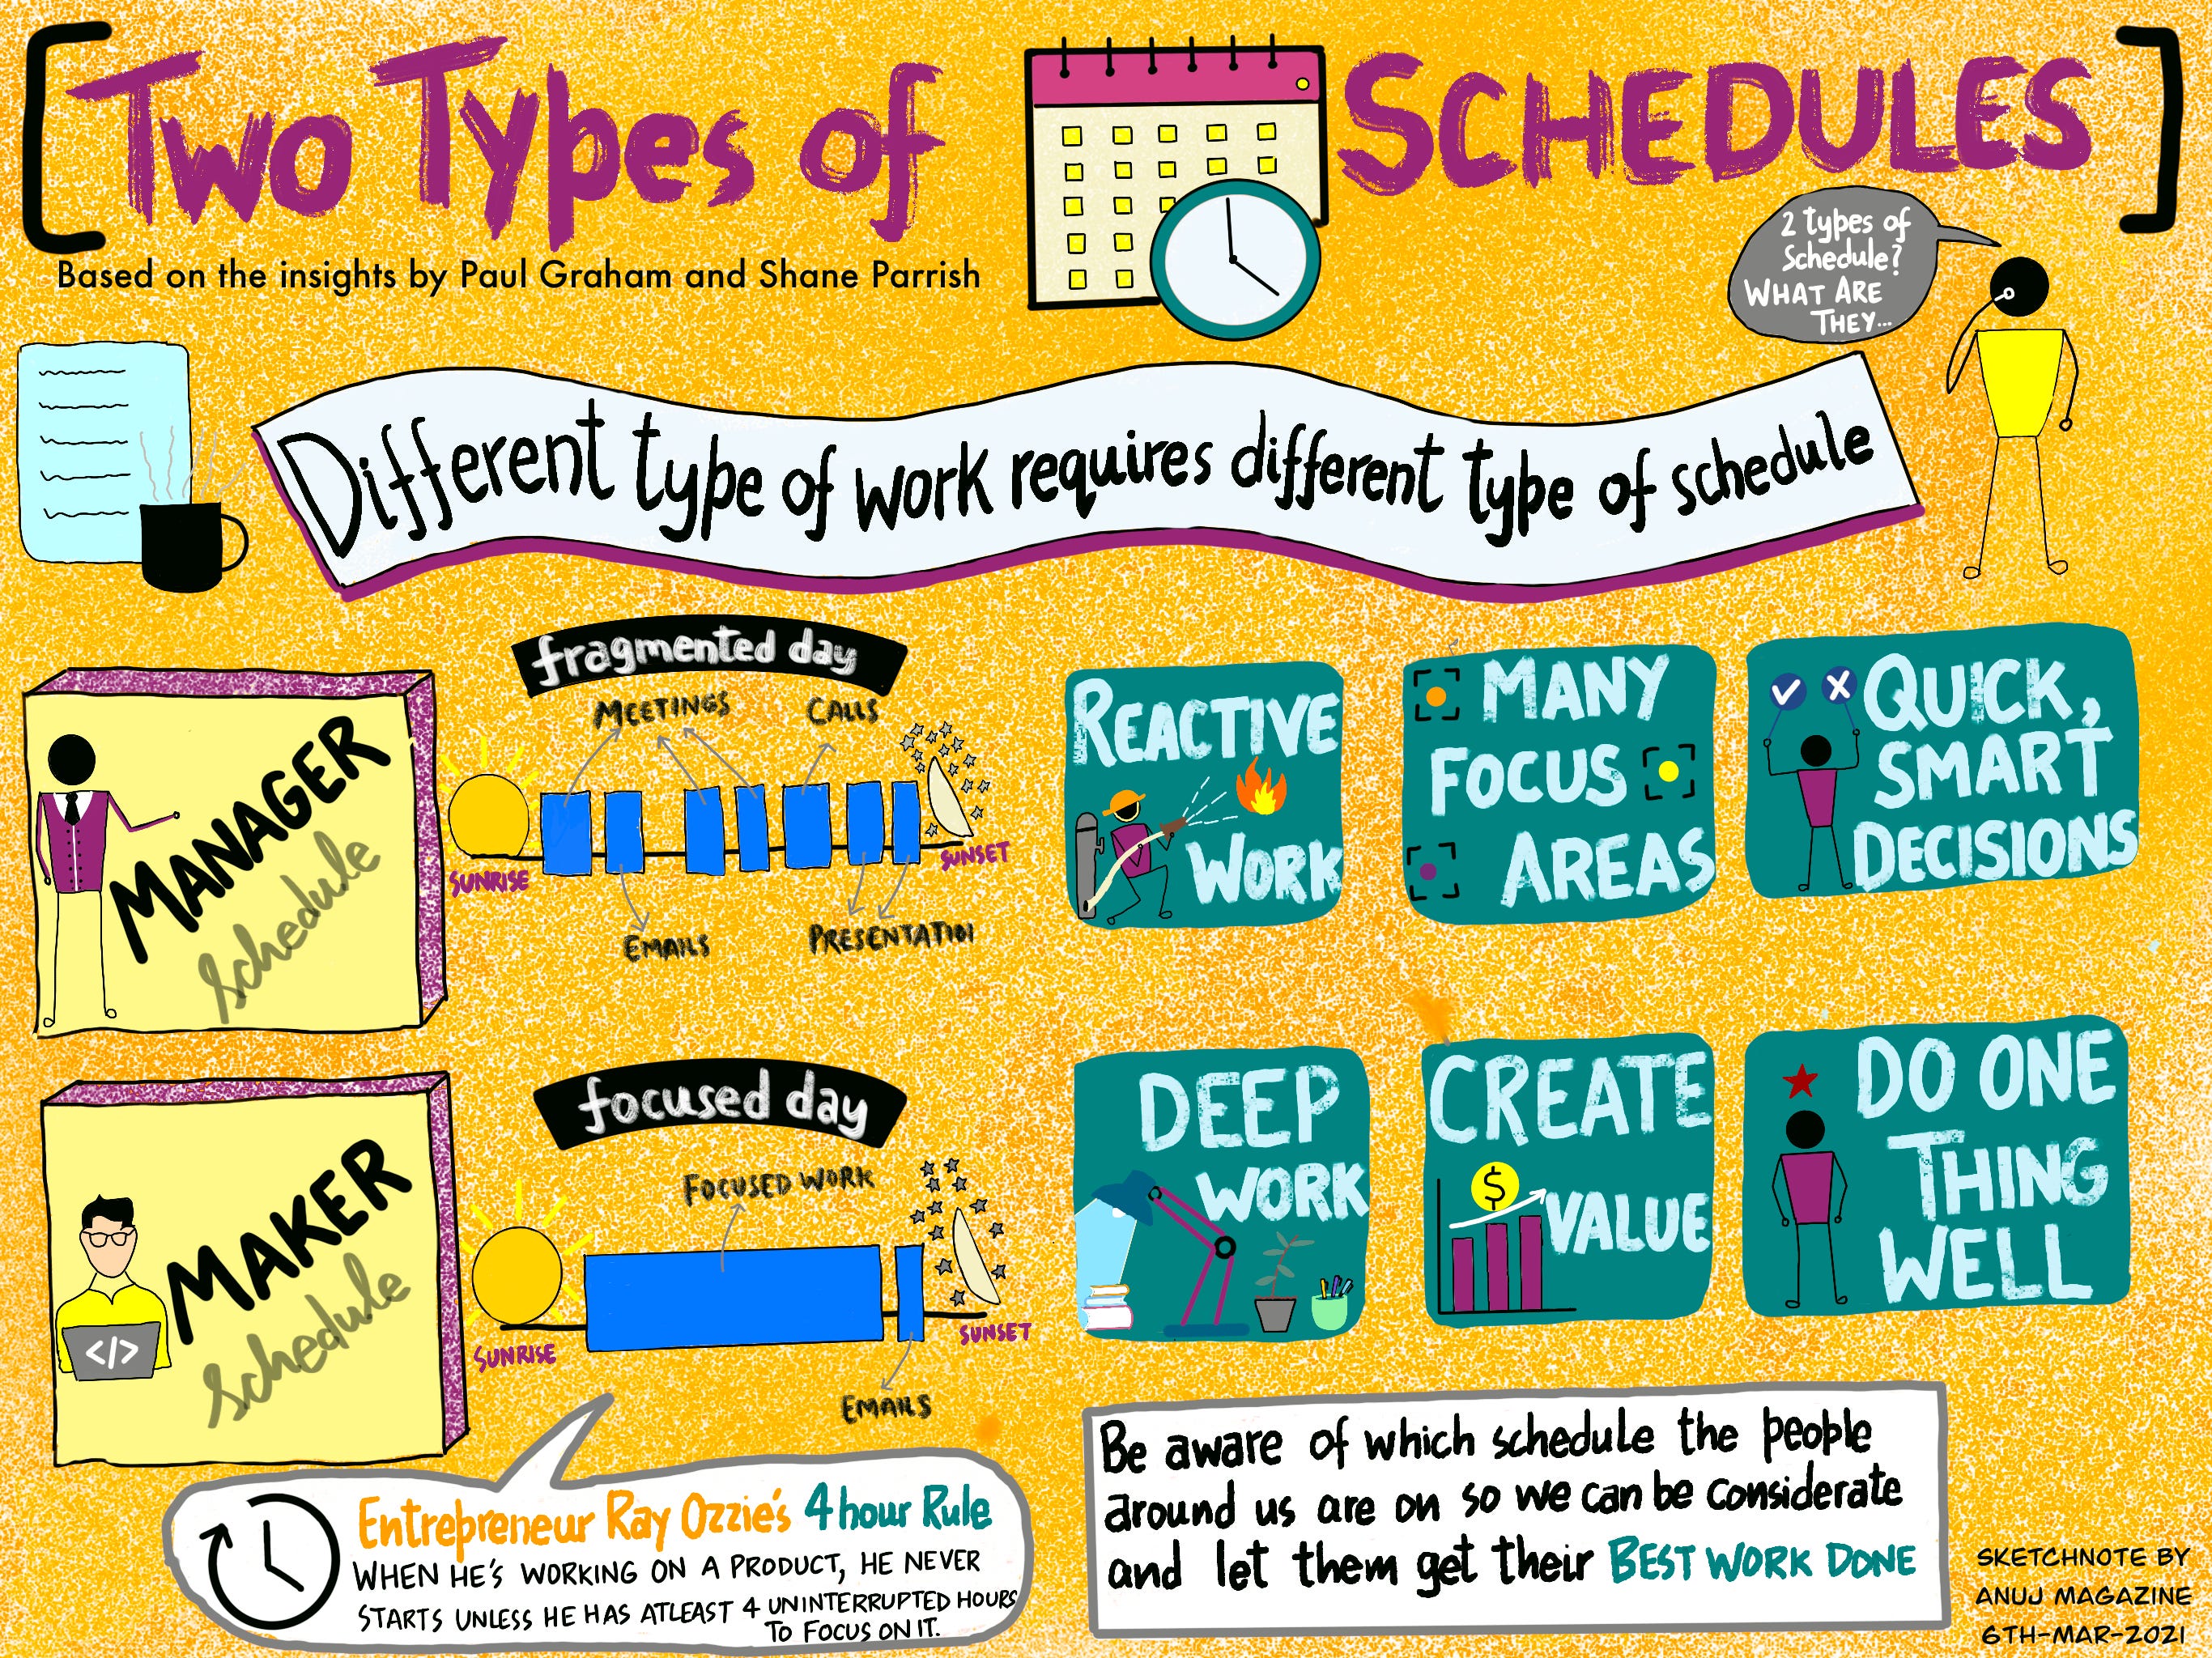 Two Types of SCHEDULES
Based on the insights by Paul Graham and Shane Parrish
2 types of
Schedule?
WHAT ARE
THEY...
Different type of work requires different type of schedule
MANAGER
Schedule
fragmented day
MEETINGS
CALLS
SUNRISE
SUNSET
EMAILS
PRESENTATION
REACTIVE
WORK
MANY
FOCUS
AREAS
QUICK,
SMART
DECISIONS
MAKER
Schedule
</>
focused day
FOCUSED WORK
SUNRISE
SUNSET
EMAILS
DEEP
WORK
CREATE
$
VALUE
DO ONE
THING
WELL
Entrepreneur Ray Ozzie's 4 hour Rule
WHEN HE'S WORKING ON A PRODUCT, HE NEVER
STARTS UNLESS HE HAS ATLEAST 4 UNINTERRUPTED HOURS
TO FOCUS ON IT.
Be aware of which schedule the people
around us are on so we can be considerate
and let them get their BEST WORK DONE
SKETCHNOTE BY
ANUJ MAGAZINE
6TH-MAR-2021